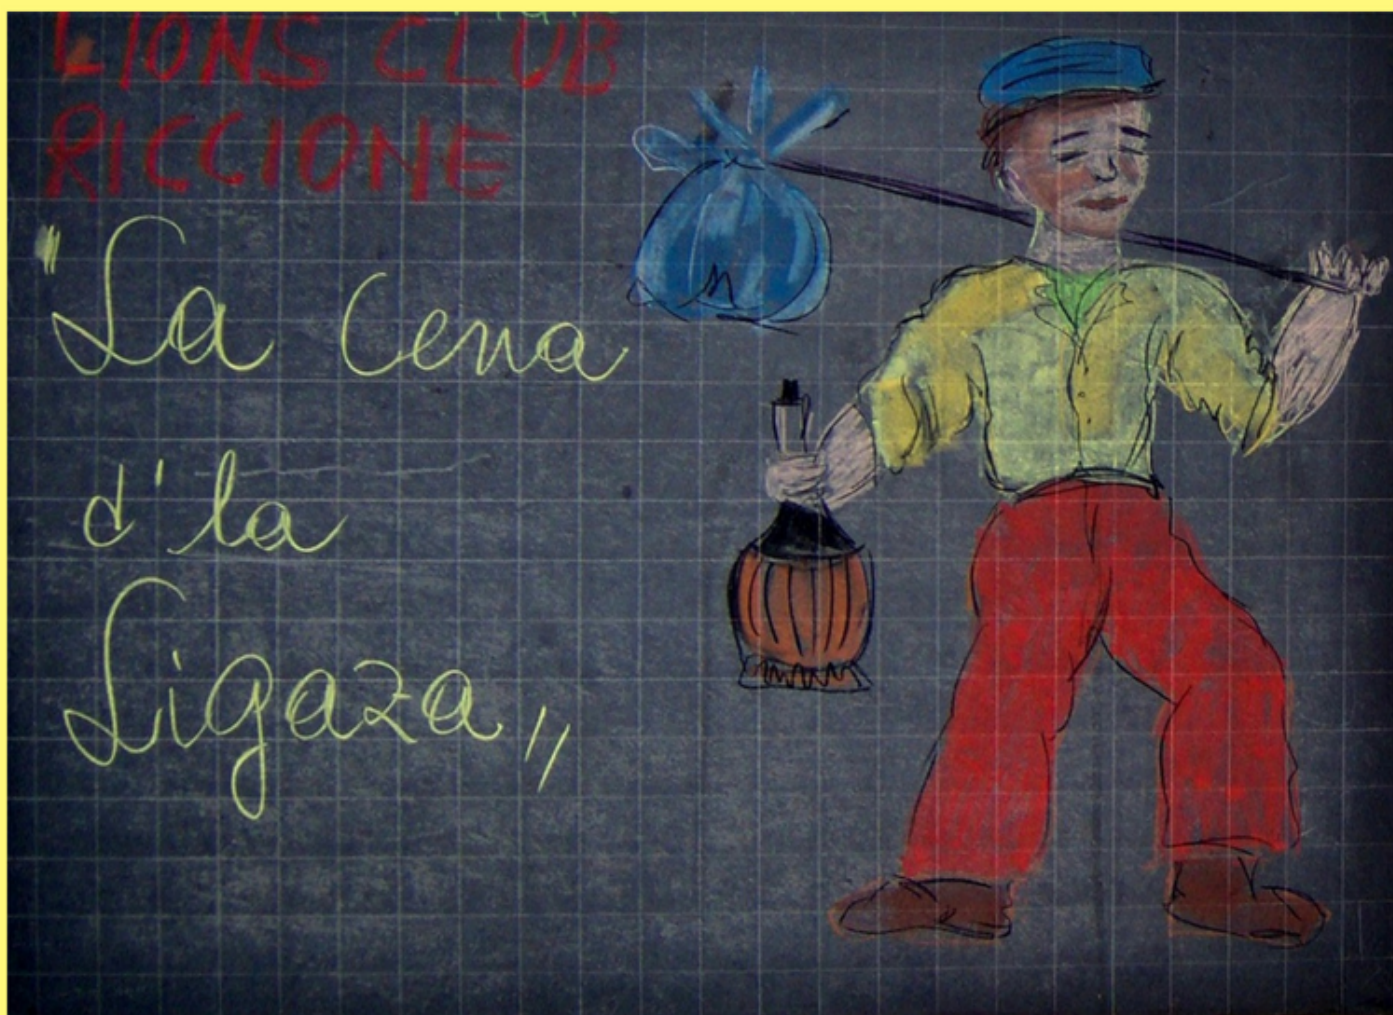 LIONS CLUB
RICCIONE
"La Cena
d'la
Ligaza"